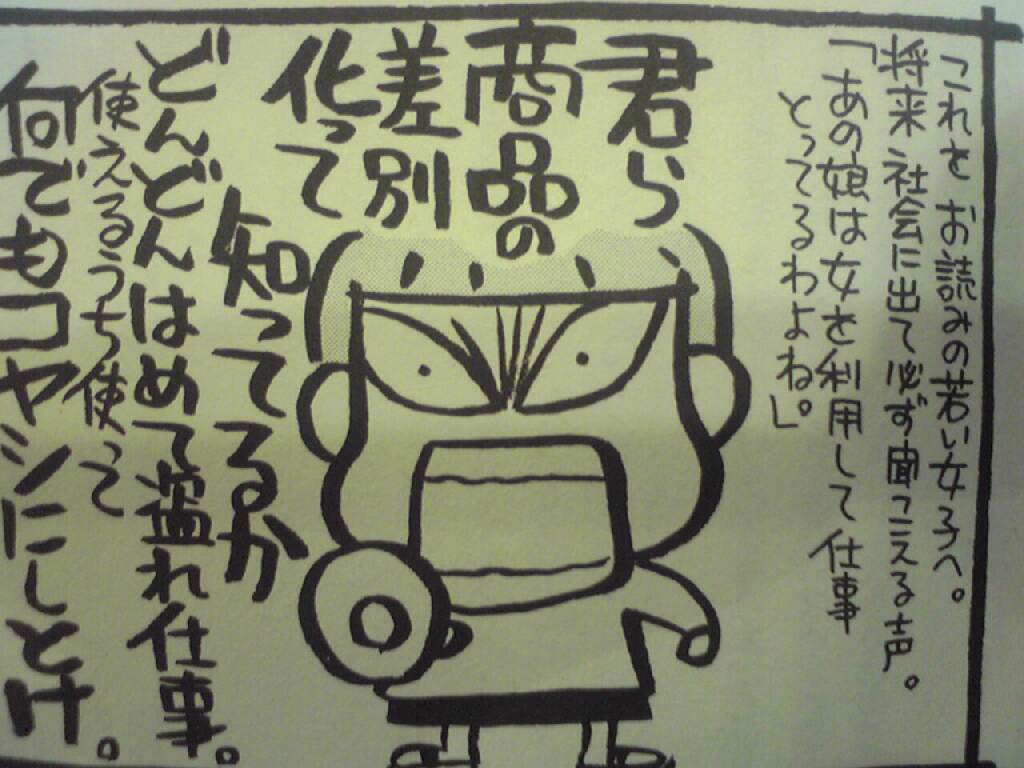 これを お読みの若い女子へ。
将来 社会に出て必ず聞こえる声。
「あの娘は女を利用して仕事
とってるわよね」。
君ら
商品の
差別
化って
知ってるか
どんどんはめて溢れ仕事。
使えるうち使って
何でもコヤシにしとけ。